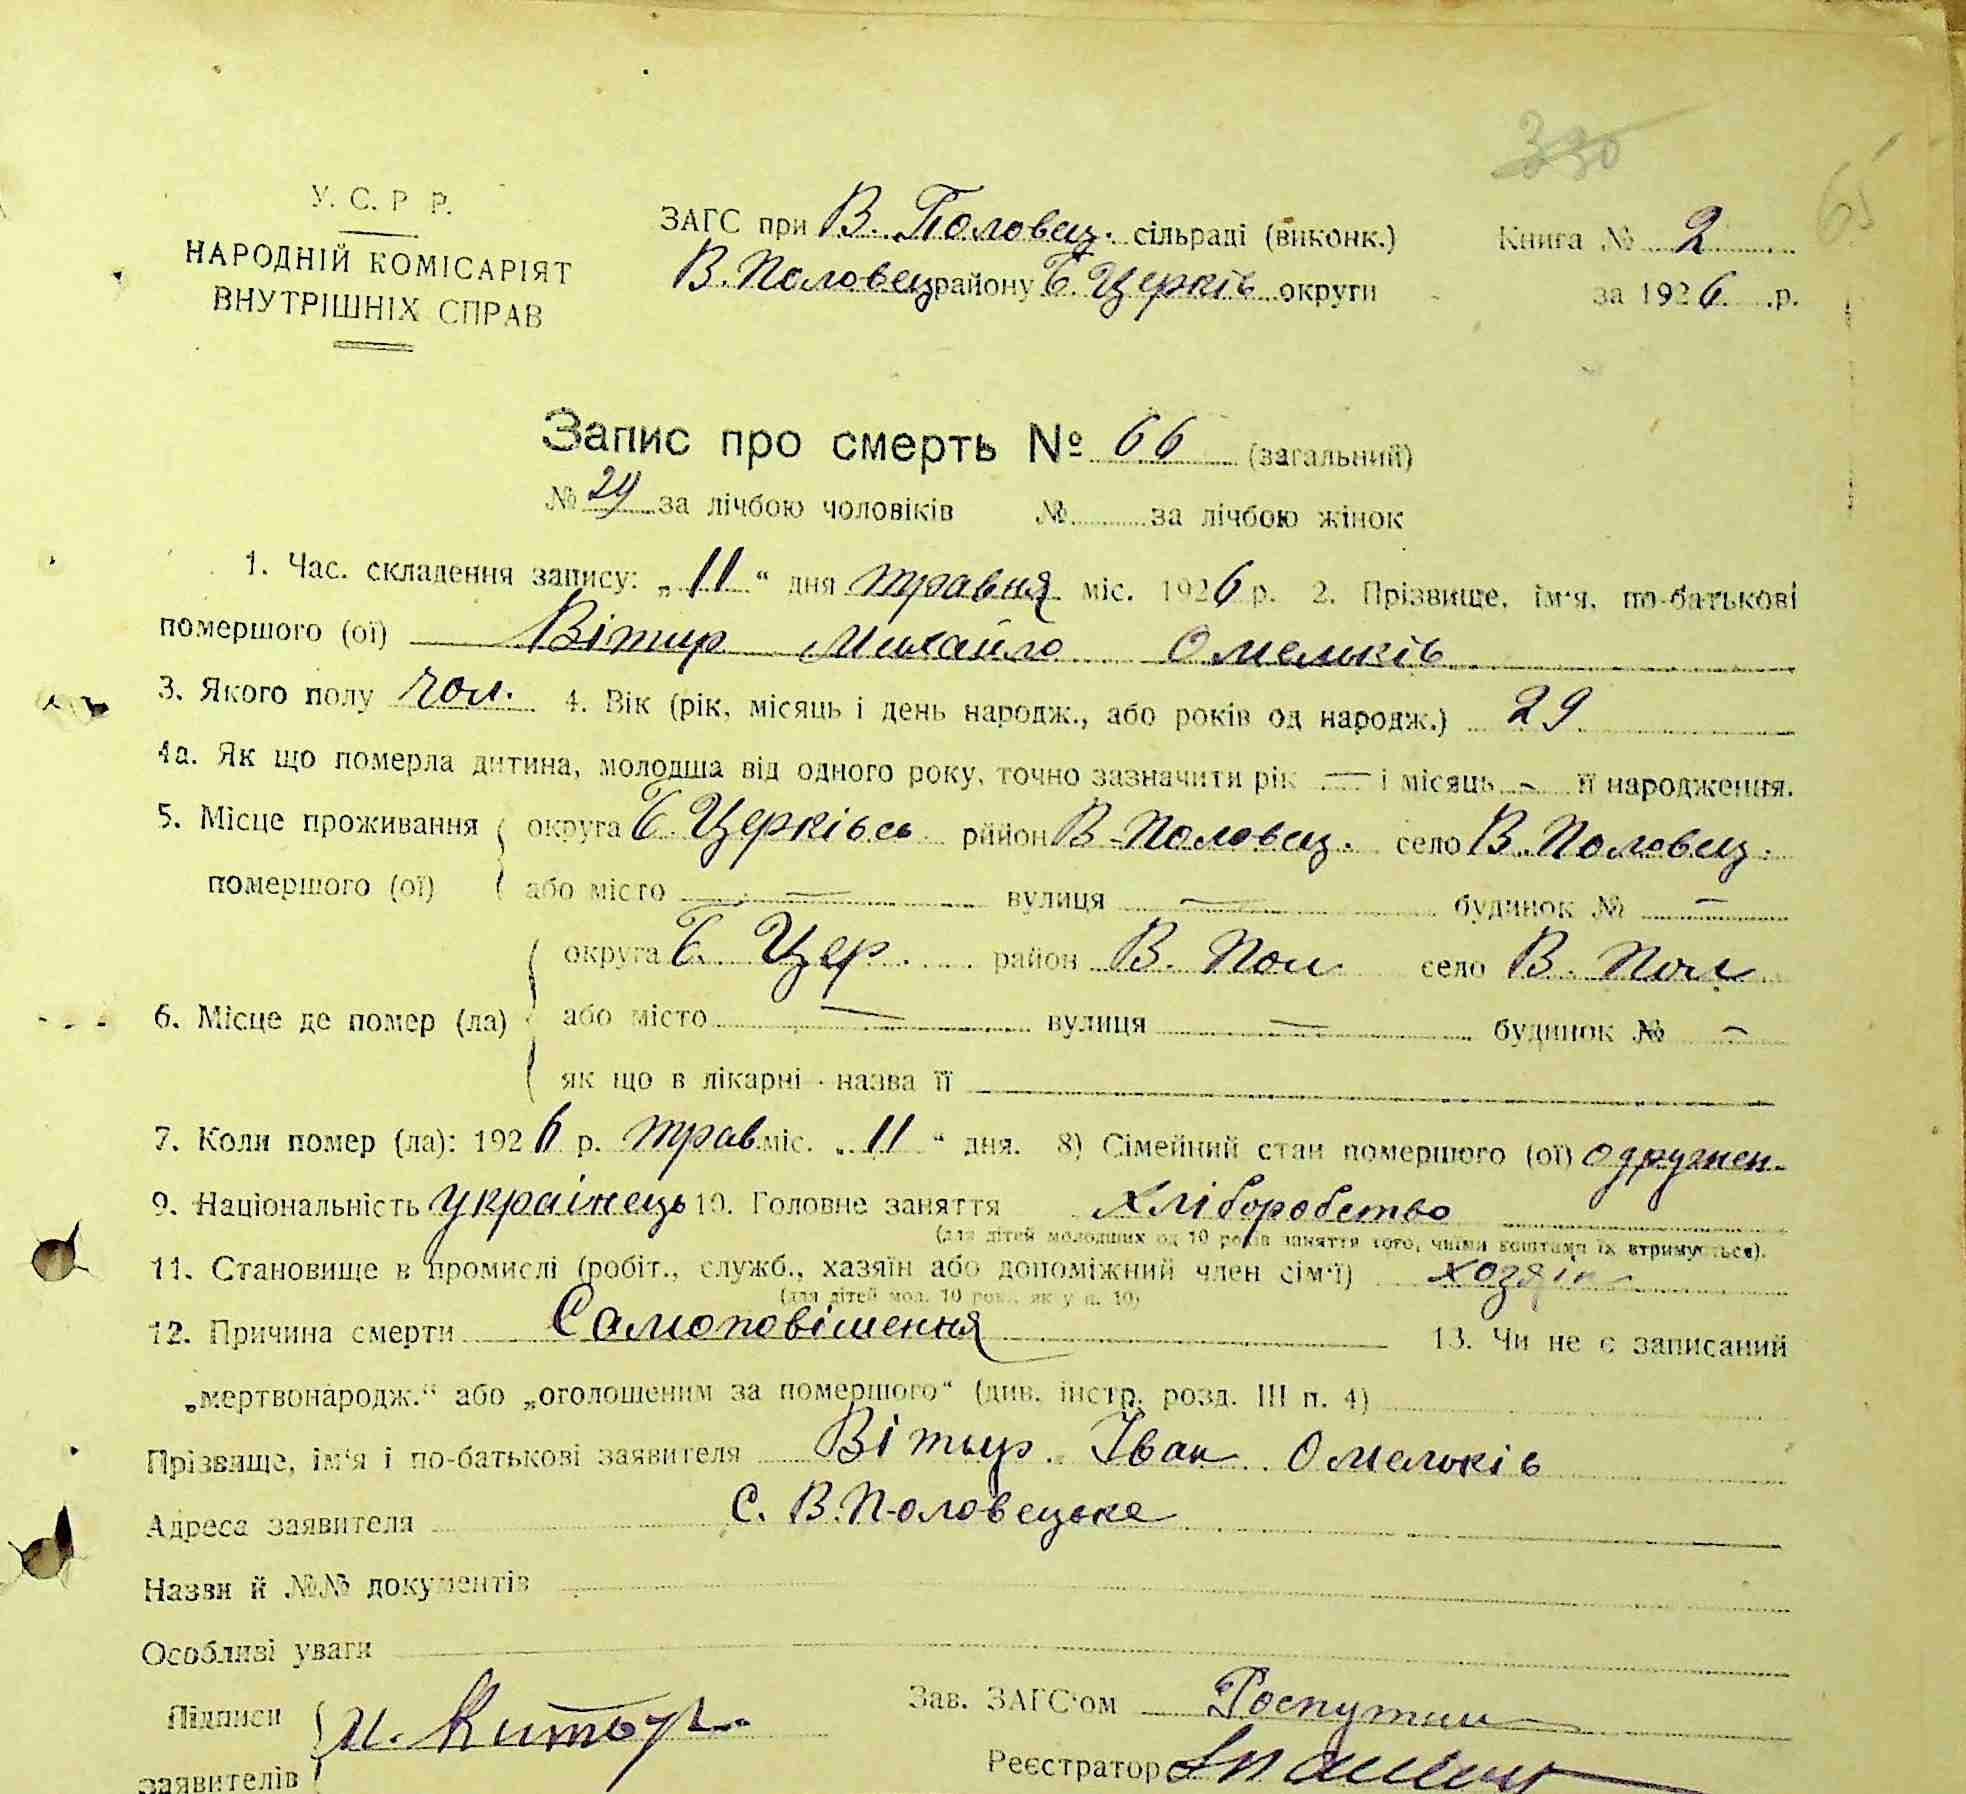 330
65
У. С. Р Р.
НАРОДНІЙ КОМІСАРІЯТ
ВНУТРІШНІХ СПРАВ
ЗАГС при В. Половец. сільраді (виконк.)
В. Половец району Б. Церків округи
Книга № 2
за 1926 р.
Запис про смерть № 66 (загальний)
№ 29 за лічбою чоловіків № за лічбою жінок
1. Час. складення запису: „11“ дня травня міс. 1926 р. 2. Прізвище, ім'я, по-батькові
помершого (ої) Вітир Михайло Омельків
3. Якого полу чол. 4. Вік (рік, місяць і день народж., або років од народж.) 29
4а. Як що померла дитина, молодша від одного року, точно зазначити рік — і місяць - її народження.
5. Місце проживання округа Б. Церківсь район В-Половец. село В. Половец.
помершого (ої) або місто — вулиця — будинок № —
округа Б. Цер. район В. Пол. село В. Пол
6. Місце де помер (ла) або місто — вулиця — будинок № -
як що в лікарні - назва її
7. Коли помер (ла): 1926 р. трав. міс. „11“ дня. 8) Сімейний стан помершого (ої) одружен.
9. Національність українець 10. Головне заняття хліборобство
(для дітей молодших од 10 років заняття того, чиїми коштами їх втримується).
11. Становище в промислі (робіт., служб., хазяїн або допоміжний член сім'ї) хозяїн
(для дітей мол. 10 рок., як у п. 10)
12. Причина смерти Самоповішення 13. Чи не є записаний
„мертвонародж.“ або „оголошеним за помершого“ (див. інстр. розд. III п. 4)
Прізвище, ім'я і по-батькові заявителя Вітыр Іван Омельків
Адреса заявителя С. В. Половецьке
Назви й №№ документів
Особливі уваги
Підписи
заявителів
Зав. ЗАГС'ом Роспутни
Реєстратор